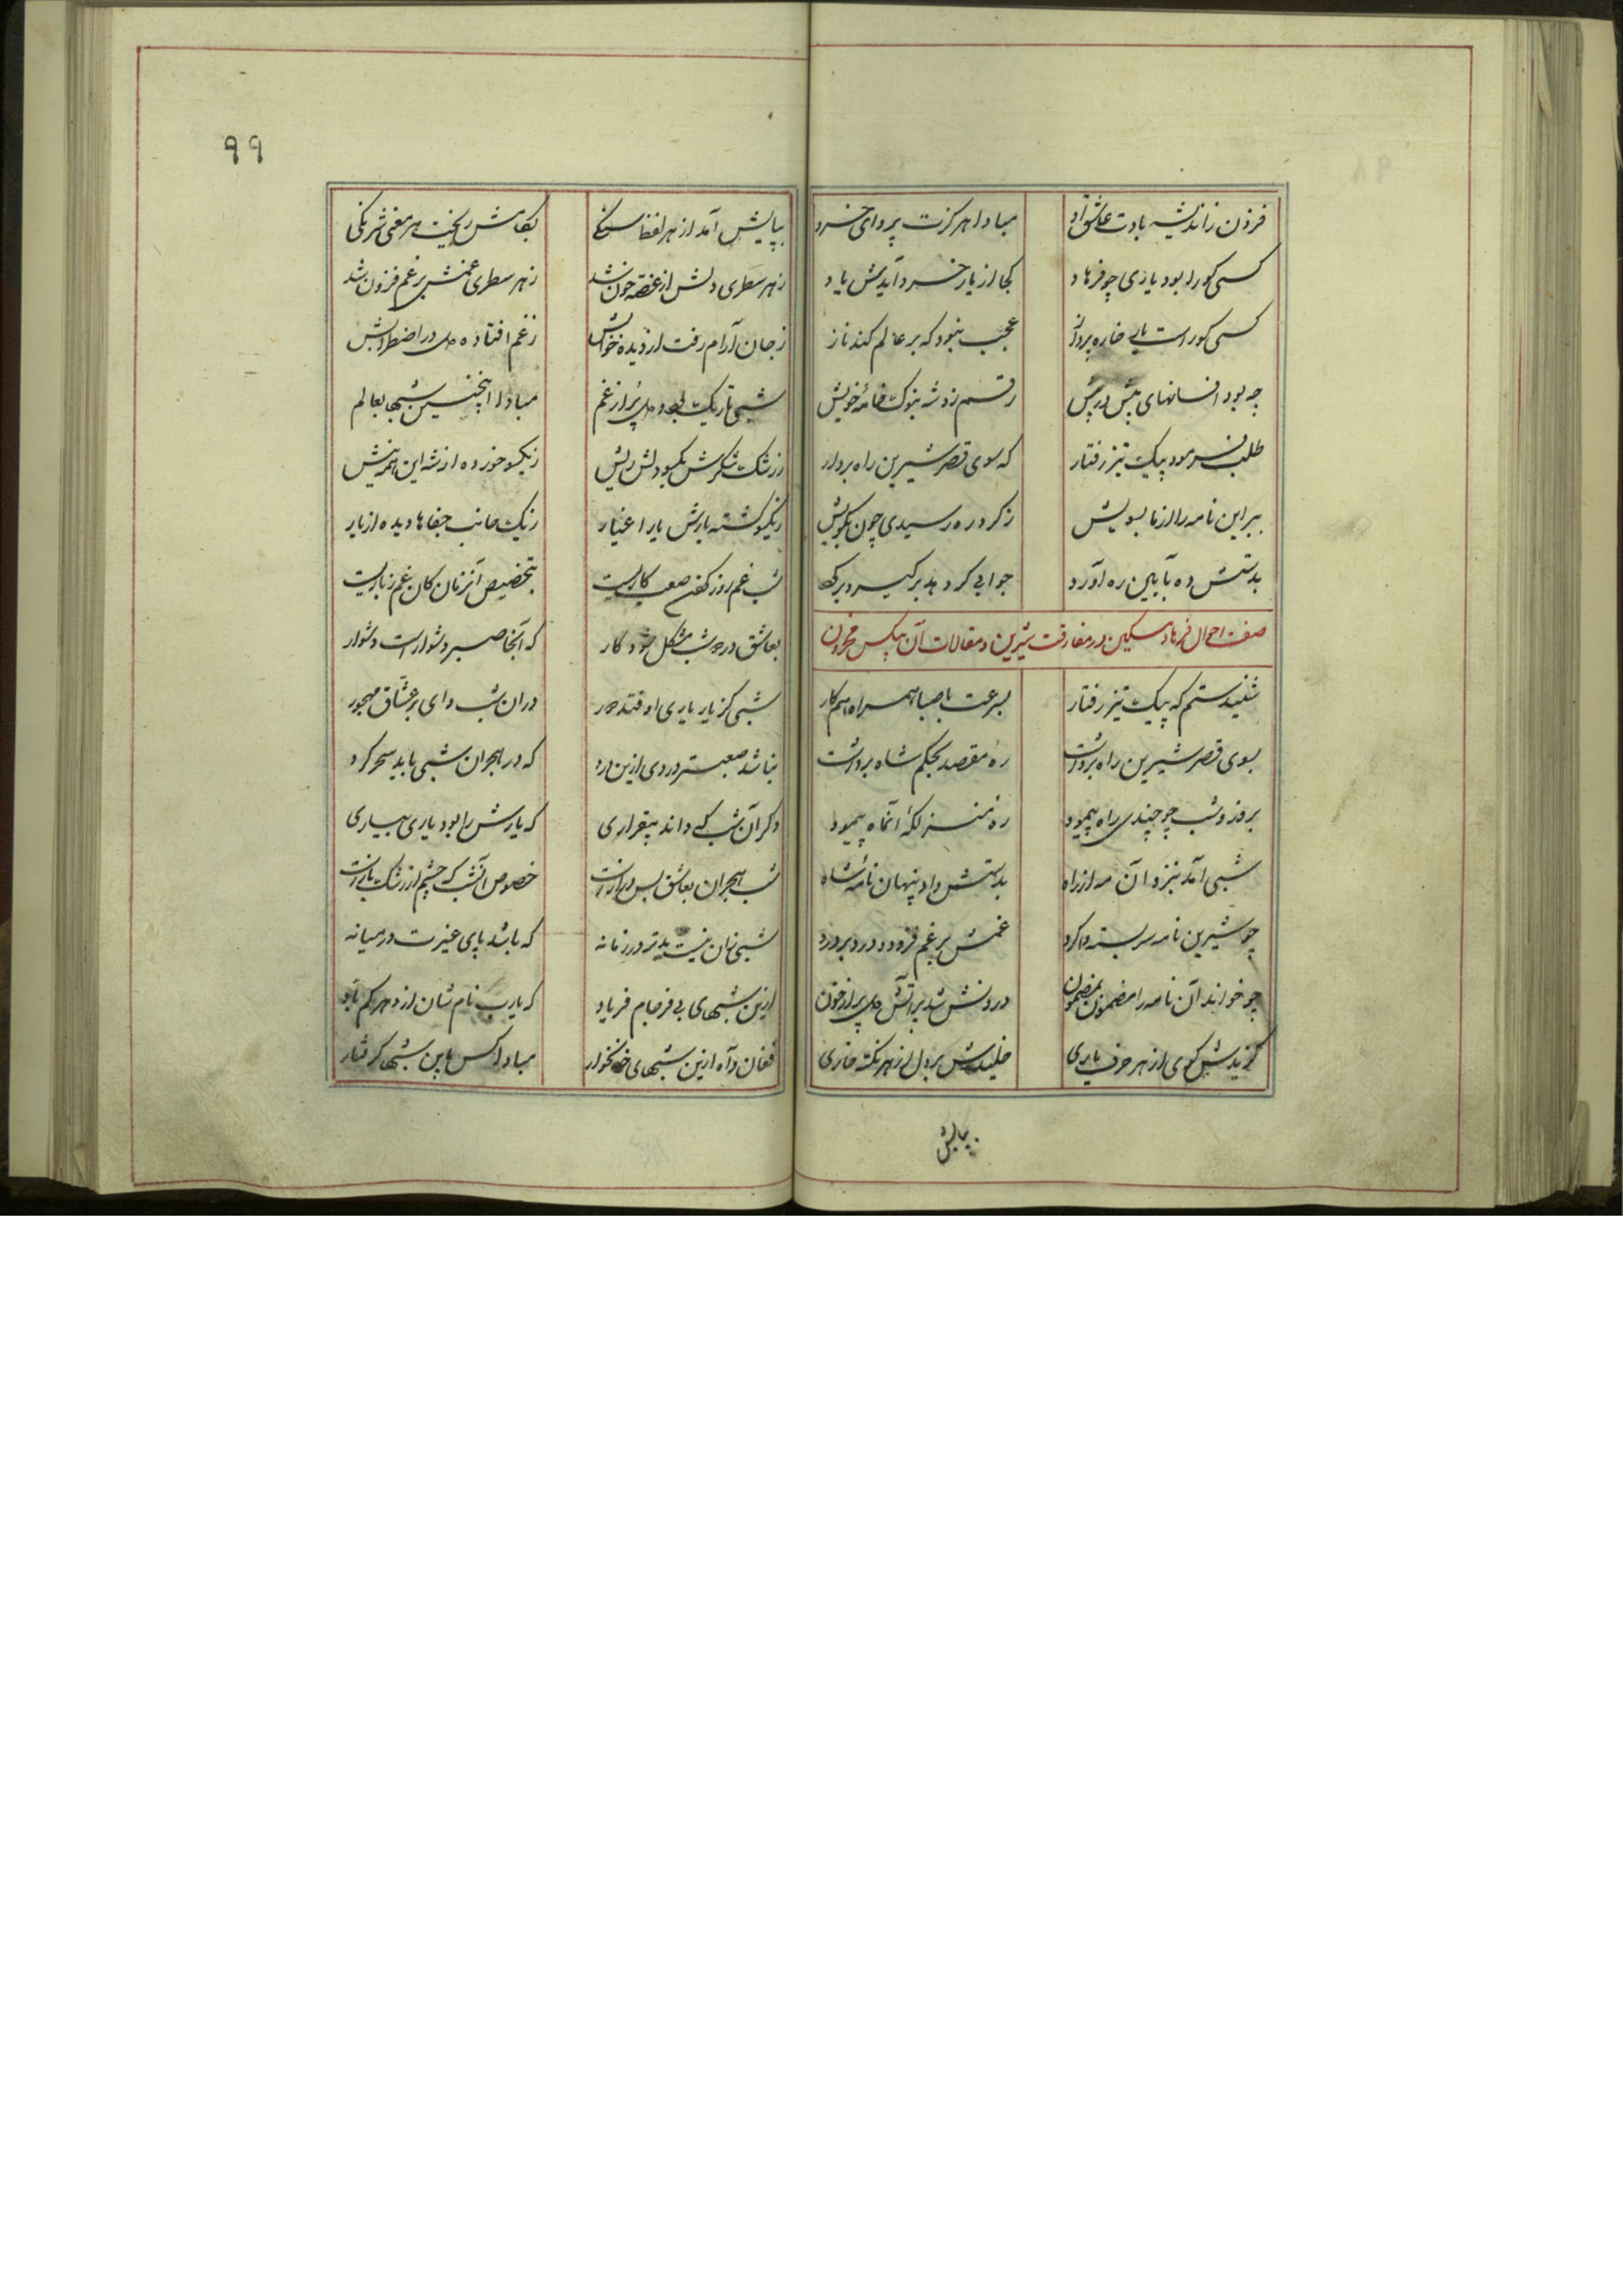 فزون ز اندیشه بادت عاشق زار مبادا هرگزت پروای خسرو
کسی کو را بود یاری چو فرهاد کجا از یار خسرو آیدش یاد
کسی کوراست یاری خاره پرداز عجب نبود که بر عالم کند ناز
چه بود افسانهای بیش در پیش رقم زد شه بنوک خامهٔ خویش
طلب فرمود پیک تیز رفتار که سوی قصر شیرین راه بردار
ببر این نامه را از ما بسویش ز کرد ره رسیدی چون بکویش
بدستش ده بآیین ره آورد جوابی کر دهد برگیر و برگرد
صفت احوال فرهاد مسکین در مفارقت شیرین و مقالات آن بیکس محزون
شنیدستم که پیک تیز رفتار بسرعت با صبا همراه و همکار
بسوی قصر شیرین راه برداشت ره مقصد بحکم شاه برداشت
بروز و شب چو چندی راه پیمود ره منزلگه آنماه پیمود
شبی آمد بنزد آن مه از راه بدستش داد پنهان نامهٔ شاه
چو شیرین نامه سربسته واکرد غمش بر غم فزود و درد بر درد
چو خواند آن نامه را مضمون بمضمون درونش شد پر آتش دل پر از خون
گزیدش گوی از هر حرف ماری خلیدش بر دل از هر نکته خاری
بپایش
۹۹
بپایش آمد از هر لفظ سنگی بکامش ریخت هر معنی شرنگی
ز هر سطری دلش از غصه خون شد ز هر سطری غمش بر غم فزون شد
ز جان آرام رفت از دیده خوابش ز غم افتاده دل در اضطرابش
شبی تاریک بود و دل پر از غم مبادا اینچنین شبها بعالم
ز رشک شکرش یکسو دلش ریش ز یکسو خورده از شه این همه نیش
ز یکسو کشته یارش یار اغیار ز یک جانب جفاها دیده از یار
شب غم روز کفتن صعب کاریست بتخصیص آنزمان کان غم ز یاریست
بعاشق در شب مشکل شود کار که آنجا صبر دشوار است دشوار
شبی کز یار یاری اوفتد دور در ان شب وای بر عشاق مهجور
نباشد صعبتر دردی ازین درد که در هجران شبی باید سحر کرد
دکر آن شب کی داند بیقراری که یارش را بود یاری بیاری
شب هجران بعاشق بس دراز است خصوص آنشب که چشم از رشک باز است
شبی زان نیست بدتر در زمانه که باشد پای غیرت در میانه
ازین شبهای بی فرجام فریاد که یارب نام شان از دهر کم باد
فغان و آه ازین شبهای خونخوار مبادا کس باین شبها کرفتار